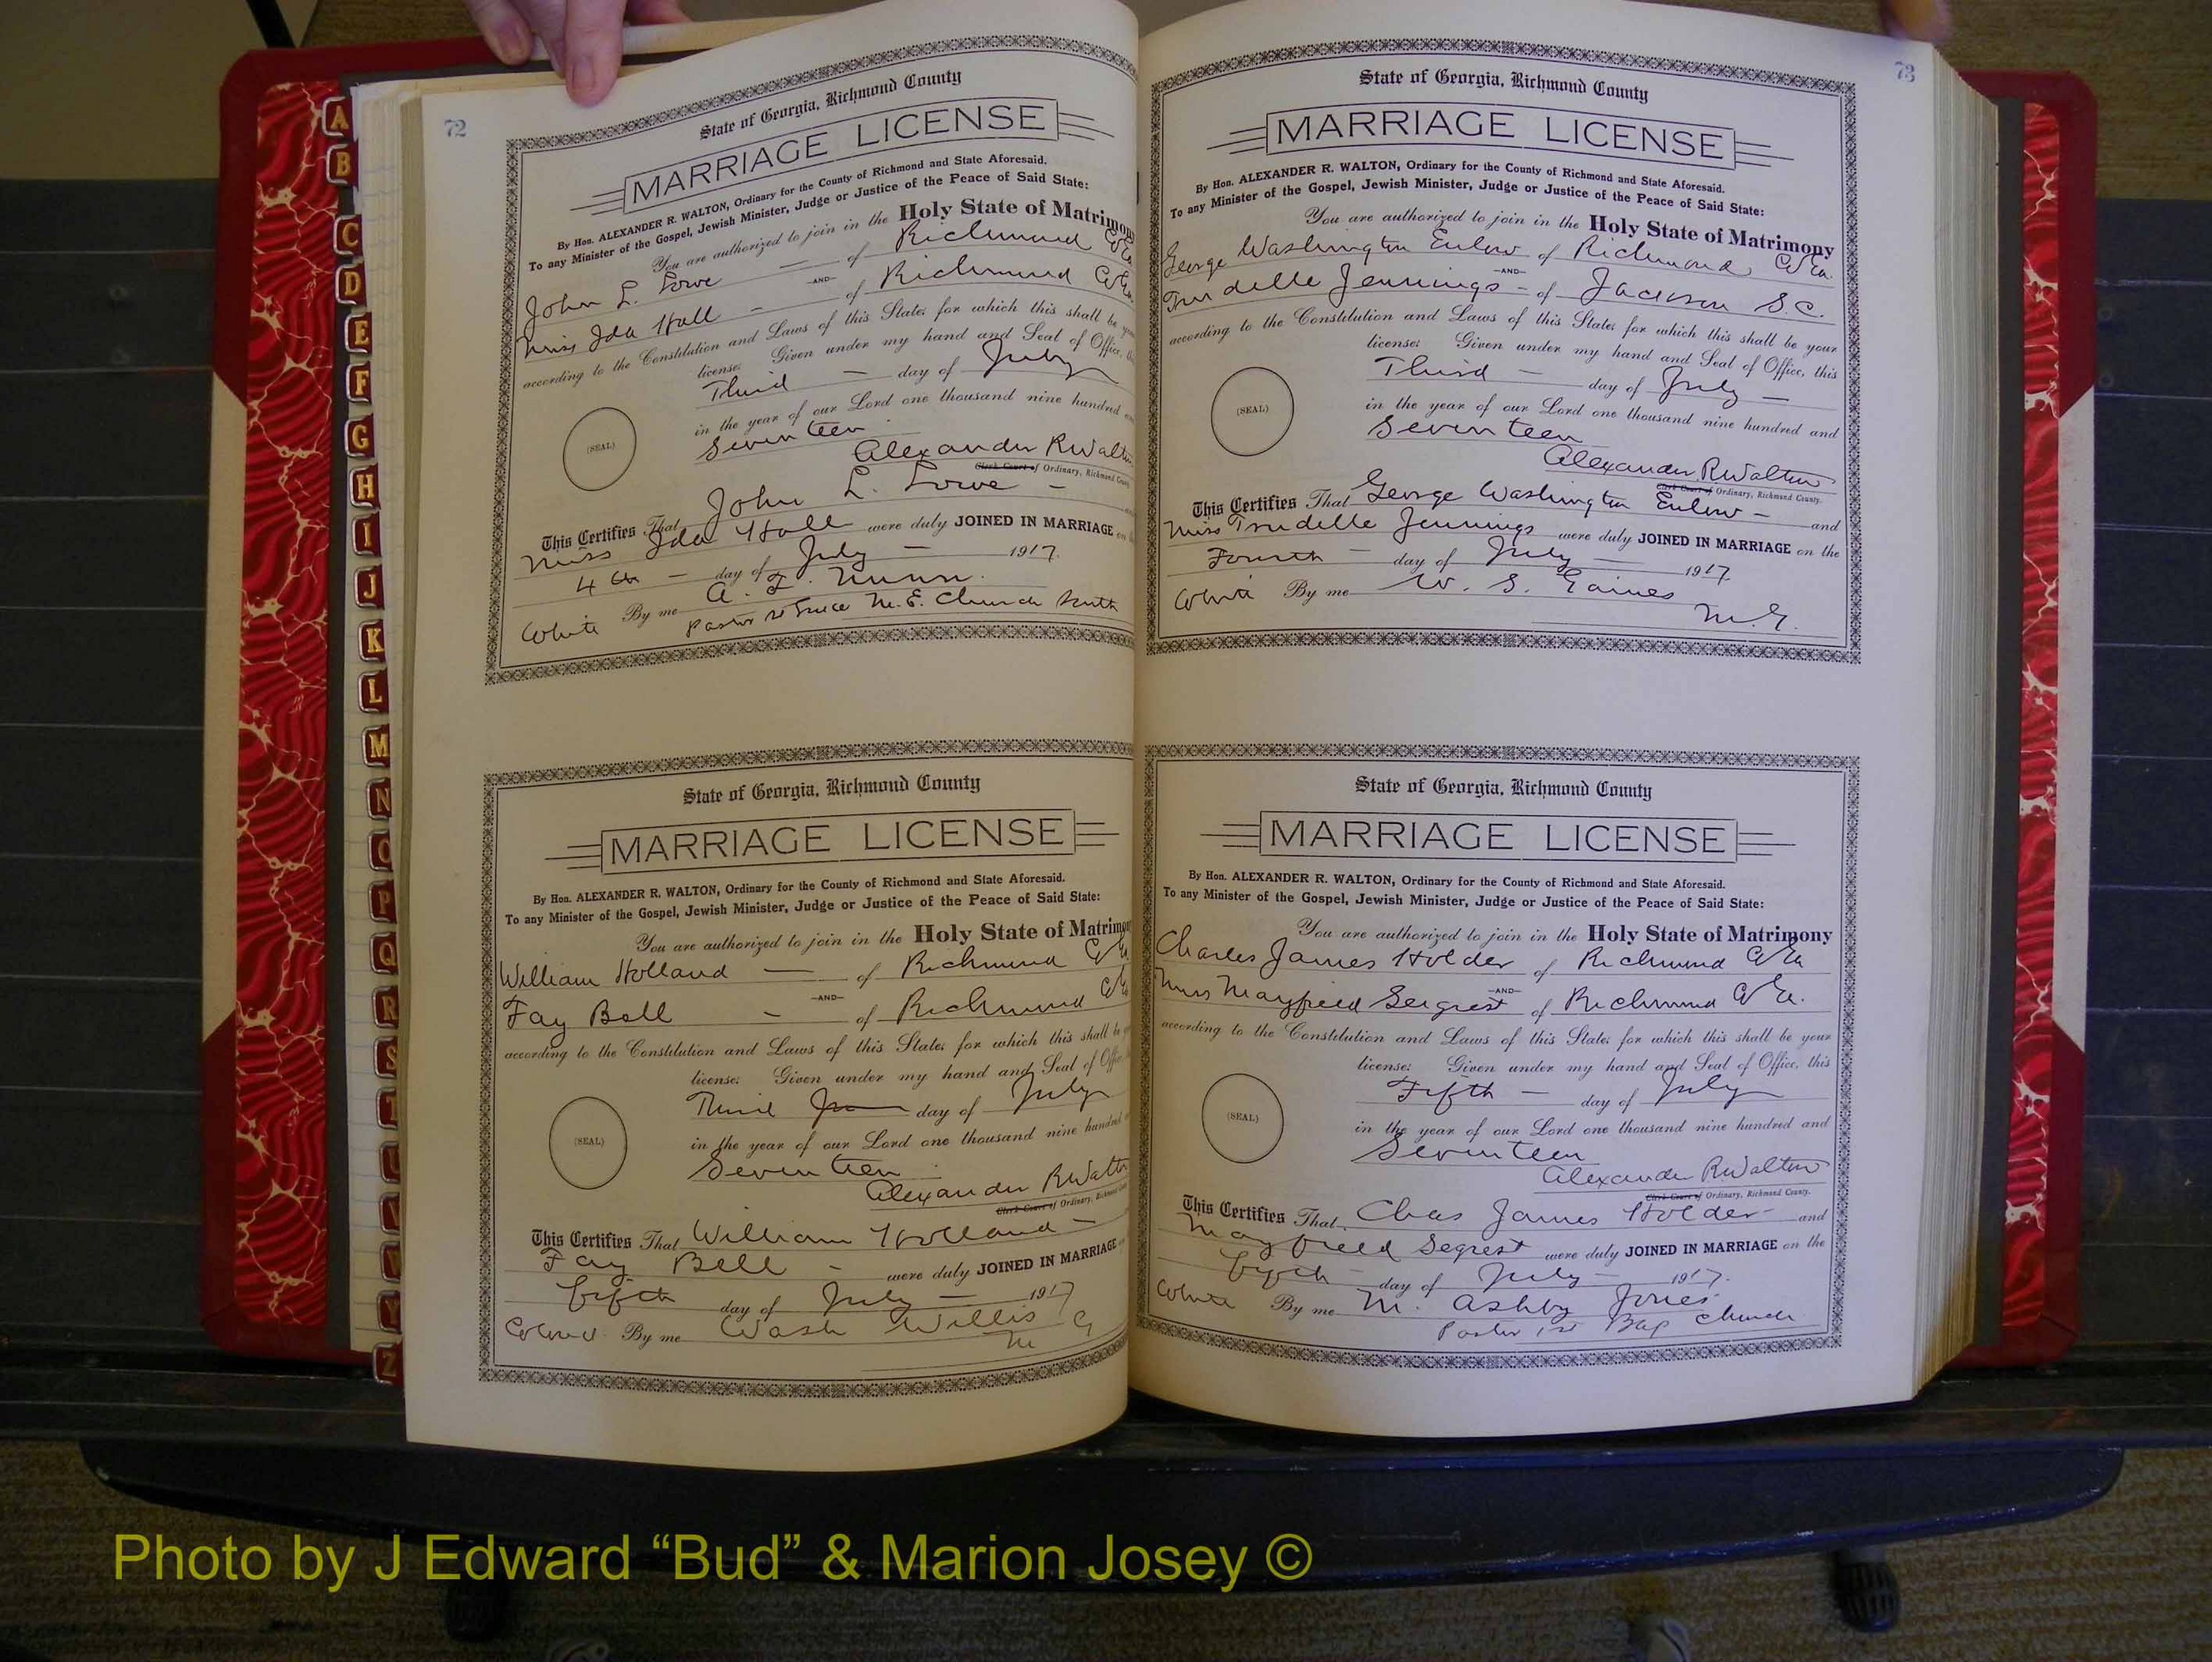 A
B
C
D
E
F
G
H
I
J
K
L
M
N
O
P
Q
R
S
T
Y
Z
72
State of Georgia, Richmond County
MARRIAGE LICENSE
By Hon. ALEXANDER R. WALTON, Ordinary for the County of Richmond and State Aforesaid.
To any Minister of the Gospel, Jewish Minister, Judge or Justice of the Peace of Said State:
You are authorized to join in the Holy State of Matrimony
John L. Lowe — of Richmond Co Ga
—AND—
Miss Ida Hall — of Richmond Co Ga.
according to the Constitution and Laws of this State; for which this shall be
license: Given under my hand and Seal of Office,
Third — day of July
in the year of our Lord one thousand nine hundred
(SEAL)
Seventeen
Alexander R Walton
Clerk Court of Ordinary, Richmond County
This Certifies That John L. Lowe —
Miss Ida Hall were duly JOINED IN MARRIAGE on
4th — day of July — 1917.
White By me
Pastor M. E. Church South
State of Georgia, Richmond County
MARRIAGE LICENSE
By Hon. ALEXANDER R. WALTON, Ordinary for the County of Richmond and State Aforesaid.
To any Minister of the Gospel, Jewish Minister, Judge or Justice of the Peace of Said State:
You are authorized to join in the Holy State of Matrimony
William Holland — of Richmond Co Ga
—AND—
Fay Bell — of Richmond Co Ga
according to the Constitution and Laws of this State; for which this shall be
license: Given under my hand and Seal of Office
Third day of July
in the year of our Lord one thousand nine hundred
(SEAL)
Seventeen
Alexander R Walton
Clerk Court of Ordinary, Richmond County
This Certifies That William Holland —
Fay Bell — were duly JOINED IN MARRIAGE
Fifth day of July — 1917
Colored By me Wash Willis
M G
73
State of Georgia, Richmond County
MARRIAGE LICENSE
By Hon. ALEXANDER R. WALTON, Ordinary for the County of Richmond and State Aforesaid.
To any Minister of the Gospel, Jewish Minister, Judge or Justice of the Peace of Said State:
You are authorized to join in the Holy State of Matrimony
George Washington Enlow of Richmond Co Ga.
—AND—
Trudelle Jennings — of Jackson S.C.
according to the Constitution and Laws of this State; for which this shall be your
license: Given under my hand and Seal of Office, this
Third — day of July —
in the year of our Lord one thousand nine hundred and
(SEAL)
Seventeen
Alexander R Walton
Clerk Court of Ordinary, Richmond County.
This Certifies That George Washington Enlow — and
Miss Trudelle Jennings were duly JOINED IN MARRIAGE on the
Fourth — day of July — 1917.
White By me W. S. Gaines
M. G.
State of Georgia, Richmond County
MARRIAGE LICENSE
By Hon. ALEXANDER R. WALTON, Ordinary for the County of Richmond and State Aforesaid.
To any Minister of the Gospel, Jewish Minister, Judge or Justice of the Peace of Said State:
You are authorized to join in the Holy State of Matrimony
Charles James Holder of Richmond Co Ga
—AND—
Miss Mayfield Seigrest of Richmond Co Ga.
according to the Constitution and Laws of this State; for which this shall be your
license: Given under my hand and Seal of Office, this
Fifth — day of July
in the year of our Lord one thousand nine hundred and
(SEAL)
Seventeen
Alexander R Walton
Clerk Court of Ordinary, Richmond County.
This Certifies That Chas James Holder — and
Mayfield Segrest were duly JOINED IN MARRIAGE on the
Fifth — day of July — 1917.
White By me M. Ashby Jones
Pastor 1st Bap Church
Photo by J Edward “Bud” & Marion Josey ©